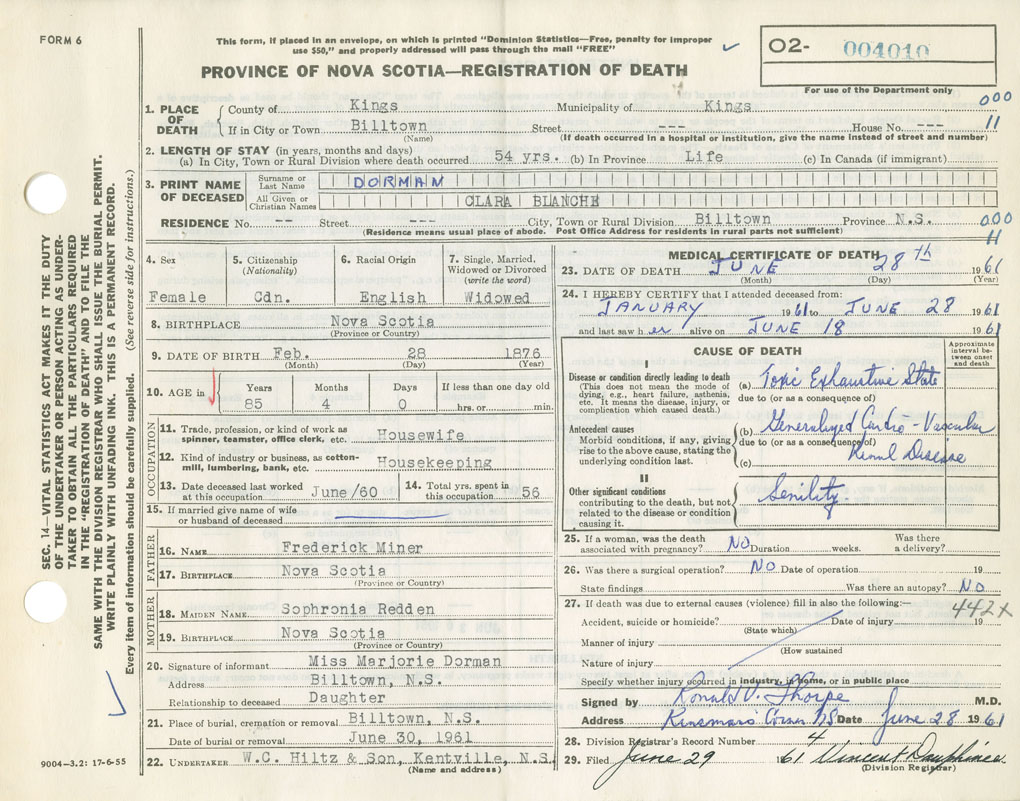 FORM 6
This form, if placed in an envelope, on which is printed "Dominion Statistics—Free, penalty for improper
use $50," and properly addressed will pass through the mail "FREE"
O2- 004010
PROVINCE OF NOVA SCOTIA—REGISTRATION OF DEATH
For use of the Department only
1. PLACE OF DEATH
County of Kings Municipality of Kings 000
If in City or Town Billtown Street --- House No. --- 11
(Name) (If death occurred in a hospital or institution, give the name instead of street and number)
2. LENGTH OF STAY (in years, months and days)
(a) In City, Town or Rural Division where death occurred 54 yrs. (b) In Province Life (c) In Canada (if immigrant)
3. PRINT NAME OF DECEASED
Surname or Last Name DORMAN
All Given or Christian Names CLARA BLANCHE
RESIDENCE No. -- Street --- City, Town or Rural Division Billtown Province N.S. 000
(Residence means usual place of abode. Post Office Address for residents in rural parts not sufficient) 11
4. Sex
Female
5. Citizenship
(Nationality)
Cdn.
6. Racial Origin
English
7. Single, Married,
Widowed or Divorced
(write the word)
Widowed
8. BIRTHPLACE Nova Scotia
(Province or Country)
9. DATE OF BIRTH Feb. 28 1876
(Month) (Day) (Year)
10. AGE in
Years Months Days If less than one day old
85 4 0 hrs. or min.
OCCUPATION
11. Trade, profession, or kind of work as
spinner, teamster, office clerk, etc. Housewife
12. Kind of industry or business, as cotton-
mill, lumbering, bank, etc. Housekeeping
13. Date deceased last worked
at this occupation June/60
14. Total yrs. spent in
this occupation 56
15. If married give name of wife
or husband of deceased
FATHER
16. NAME Frederick Miner
17. BIRTHPLACE Nova Scotia
(Province or Country)
MOTHER
18. MAIDEN NAME Sophronia Redden
19. BIRTHPLACE Nova Scotia
(Province or Country)
20. Signature of informant Miss Marjorie Dorman
Address Billtown, N.S.
Relationship to deceased Daughter
21. Place of burial, cremation or removal Billtown, N.S.
Date of burial or removal June 30, 1961
22. UNDERTAKER W.C. Hiltz & Son, Kentville, N.S.
(Name and address)
MEDICAL CERTIFICATE OF DEATH
23. DATE OF DEATH JUNE 28th 1961
(Month) (Day) (Year)
24. I HEREBY CERTIFY that I attended deceased from:
JANUARY 1961 to JUNE 28 1961
and last saw her alive on JUNE 18 1961
CAUSE OF DEATH
Approximate
interval be-
tween onset
and death
I
Disease or condition directly leading to death
(This does not mean the mode of
dying, e.g., heart failure, asthenia,
etc. It means the disease, injury, or
complication which caused death.)
(a) Toxic Exhaustive State
due to (or as a consequence of)
Antecedent causes
Morbid conditions, if any, giving
rise to the above cause, stating the
underlying condition last.
(b) Generalized Cardio-Vascular
due to (or as a consequence of)
(c) Renal Disease
II
Other significant conditions
contributing to the death, but not
related to the disease or condition
causing it.
Senility.
25. If a woman, was the death
associated with pregnancy? NO Duration weeks. Was there
a delivery?
26. Was there a surgical operation? NO Date of operation 19
State findings Was there an autopsy? NO
27. If death was due to external causes (violence) fill in also the following:— 442x
Accident, suicide or homicide? Date of injury 19
(State which)
Manner of injury
(How sustained
Nature of injury
Specify whether injury occurred in industry, in home, or in public place
Signed by Ronald V. Thorpe M.D.
Address Kinsmans Corner NS Date June 28 1961
28. Division Registrar's Record Number 4
29. Filed June 29 1961 Vincent Dauphinee
(Division Registrar)
SEC. 14—VITAL STATISTICS ACT MAKES IT THE DUTY
OF THE UNDERTAKER OR PERSON ACTING AS UNDER-
TAKER TO OBTAIN ALL THE PARTICULARS REQUIRED
IN THE "REGISTRATION OF DEATH" AND FILE THE
SAME WITH THE DIVISION REGISTRAR WHO SHALL ISSUE THE BURIAL PERMIT.
WRITE PLAINLY WITH UNFADING INK. THIS IS A PERMANENT RECORD.
Every item of information should be carefully supplied. (See reverse side for instructions.)
9004—3.2: 17-6-55